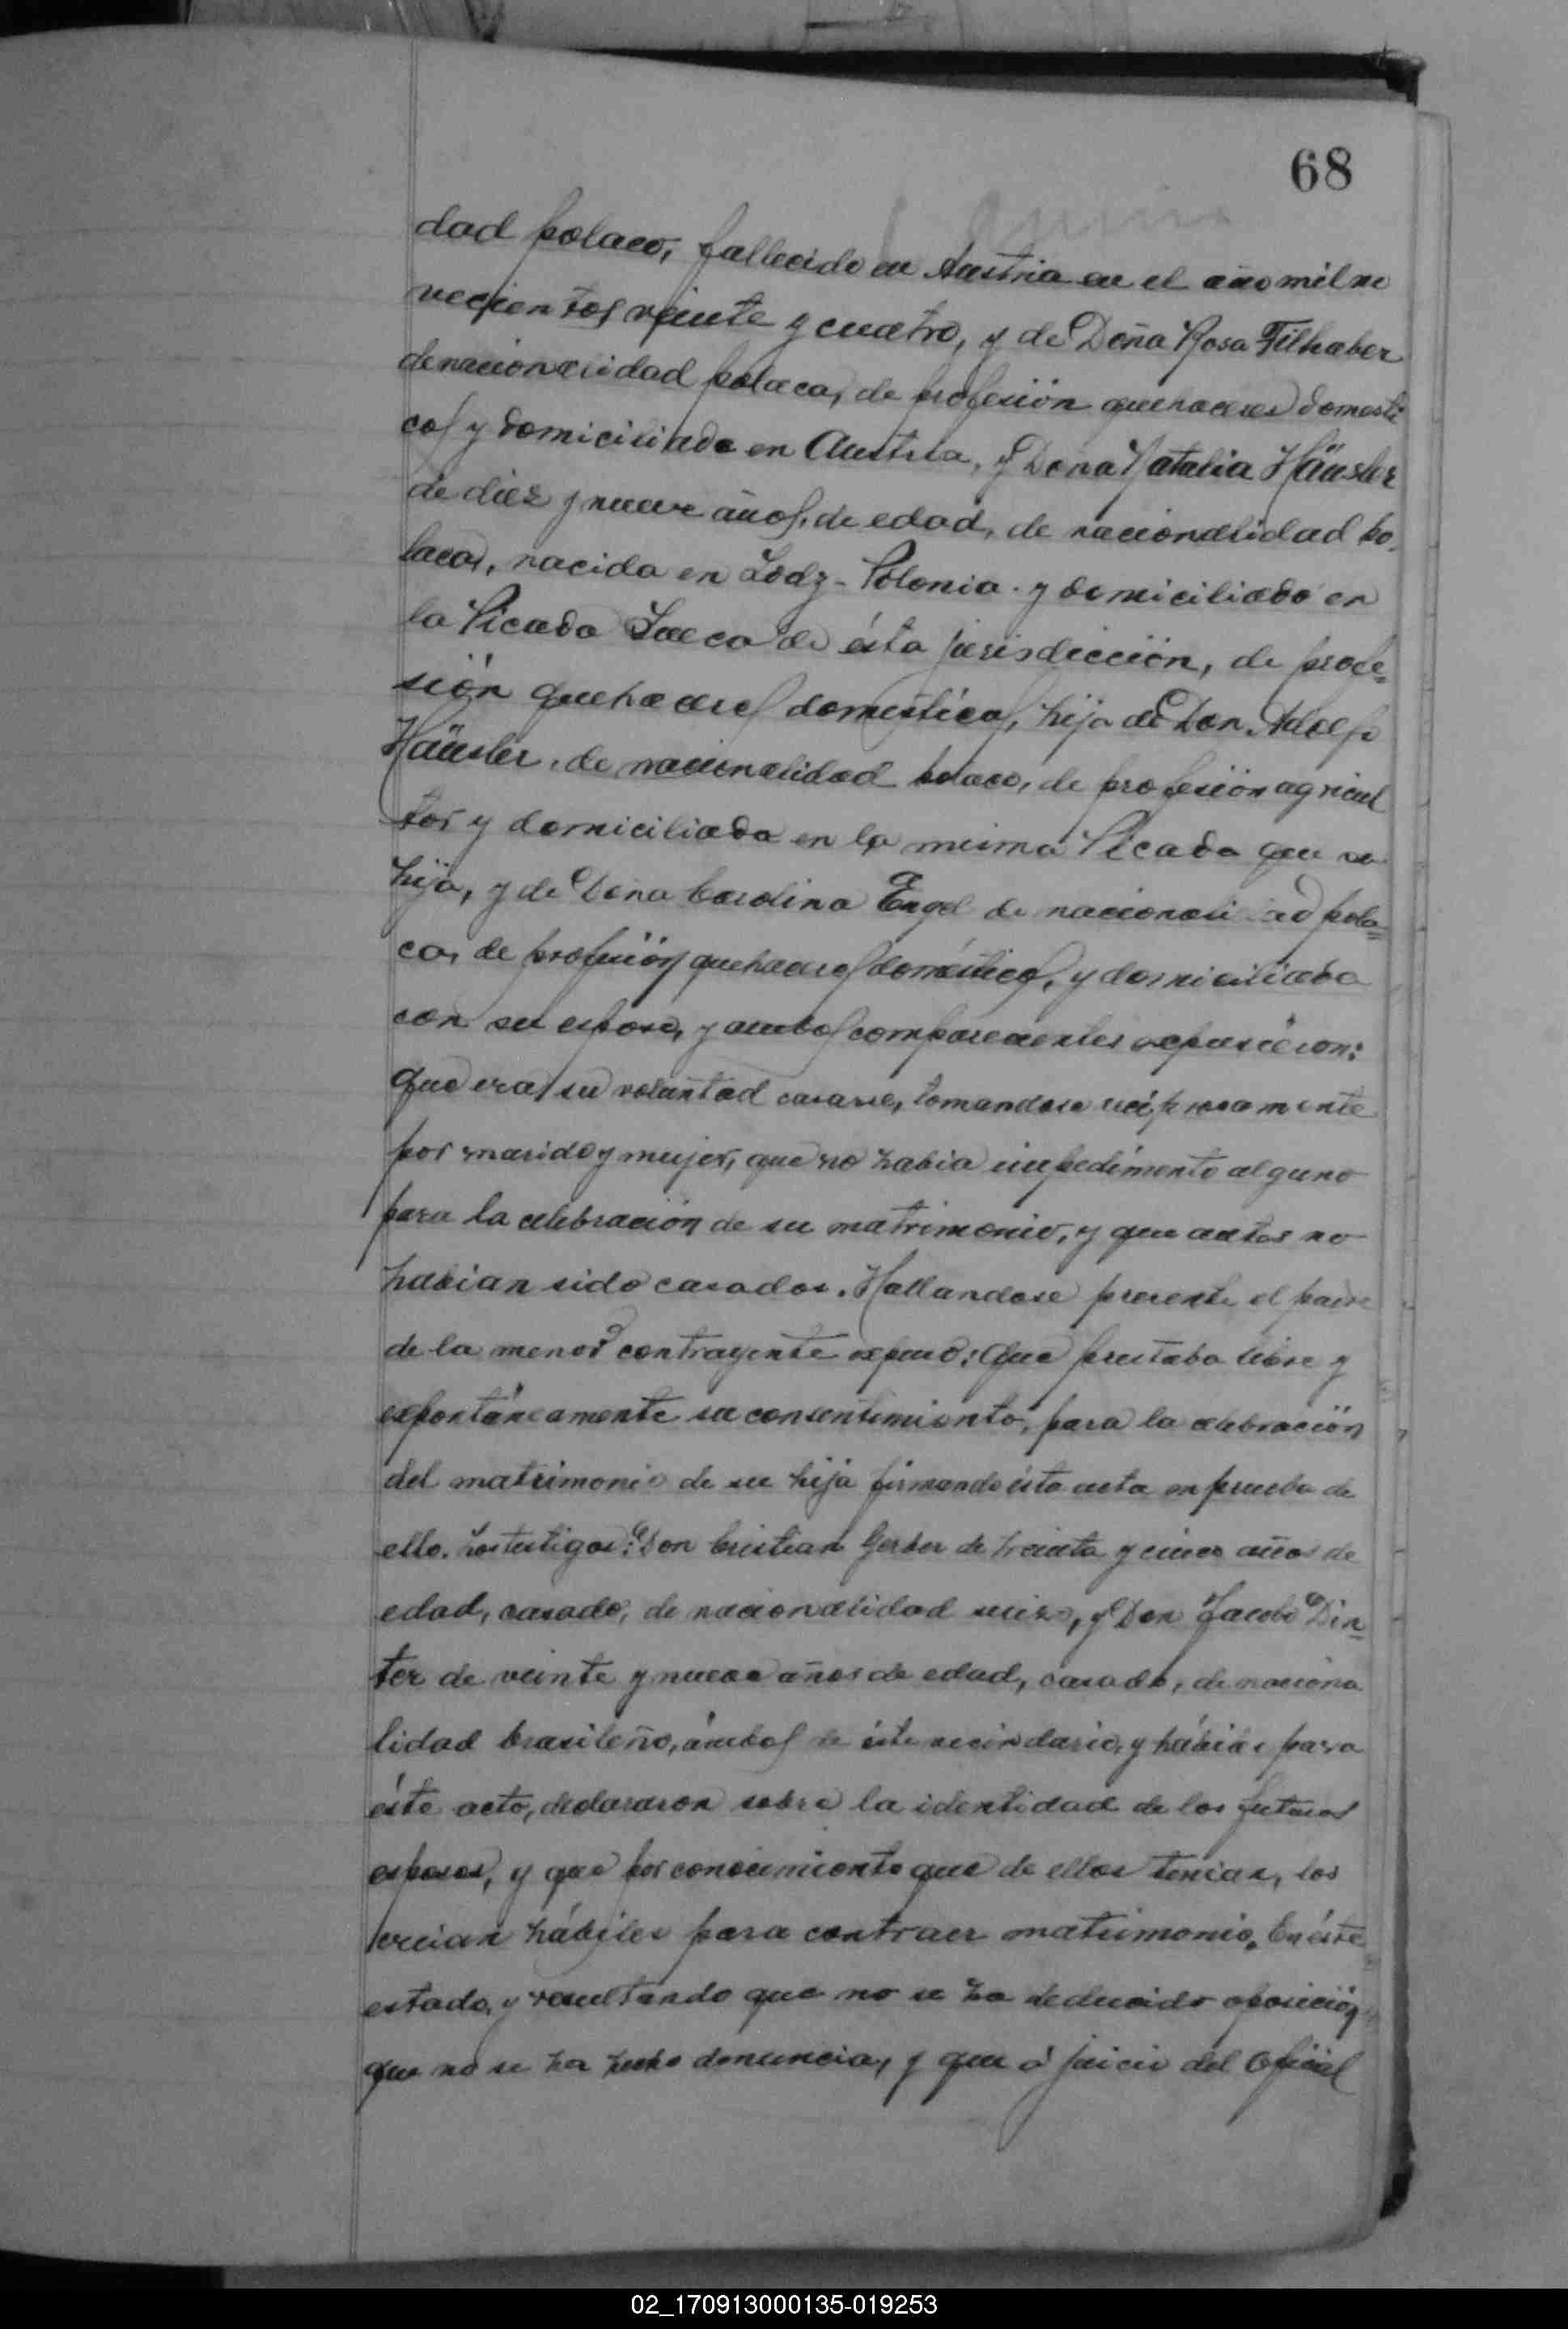 68
dad polaco, fallecido en Austria en el año mil no
vecientos veinte y cuatro, y de Doña Rosa Filhaber
de nacionalidad polaca, de profesión quehaceres domesti
cos y domiciliada en Austria, y Doña Natalia Häusler
de diez y nueve años, de edad, de nacionalidad po-
laca, nacida en Lodz - Polonia. y domiciliado en
la Picada Sueca de ésta jurisdicción, de profe=
sión quehaceres domésticos, hija de Don. Adolfo
Häusler, de nacionalidad polaco, de profesión agricul
tor y domiciliado en la misma Picada que su
hija, y de Doña Carolina Engel de nacionalidad pola=
ca, de profesión quehaceres domésticos, y domiciliada
con su esposo, y ambos comparecientes expusieron:
que era su voluntad casarse, tomandose reciprocamente
por marido y mujer, que no habia impedimento alguno
para la celebración de su matrimonio, y que antes no
habian sido casados. Hallandose presente el padre
de la menor contrayente expuso: Que prestaba libre y
espontáneamente su consentimiento, para la celebración
del matrimonio de su hija firmando ésta acta en prueba de
ello. Los testigos: Don Cristian Gerber de treinta y cinco años de
edad, casado, de nacionalidad suizo, y Don Jacobo Din=
ter de veinte y nueve años de edad, casado, de naciona
lidad brasileño, ámbos de éste vecindario, y hábiles para
éste acto, declararon sobre la identidad de los futuros
esposos, y que por conocimiento que de ellos tenian, los
creian hábiles para contraer matrimonio. En éste
estado, y resultando que no se ha deducido oposición
que no se ha hecho denuncia, y que á juicio del Oficial
02_170913000135-019253